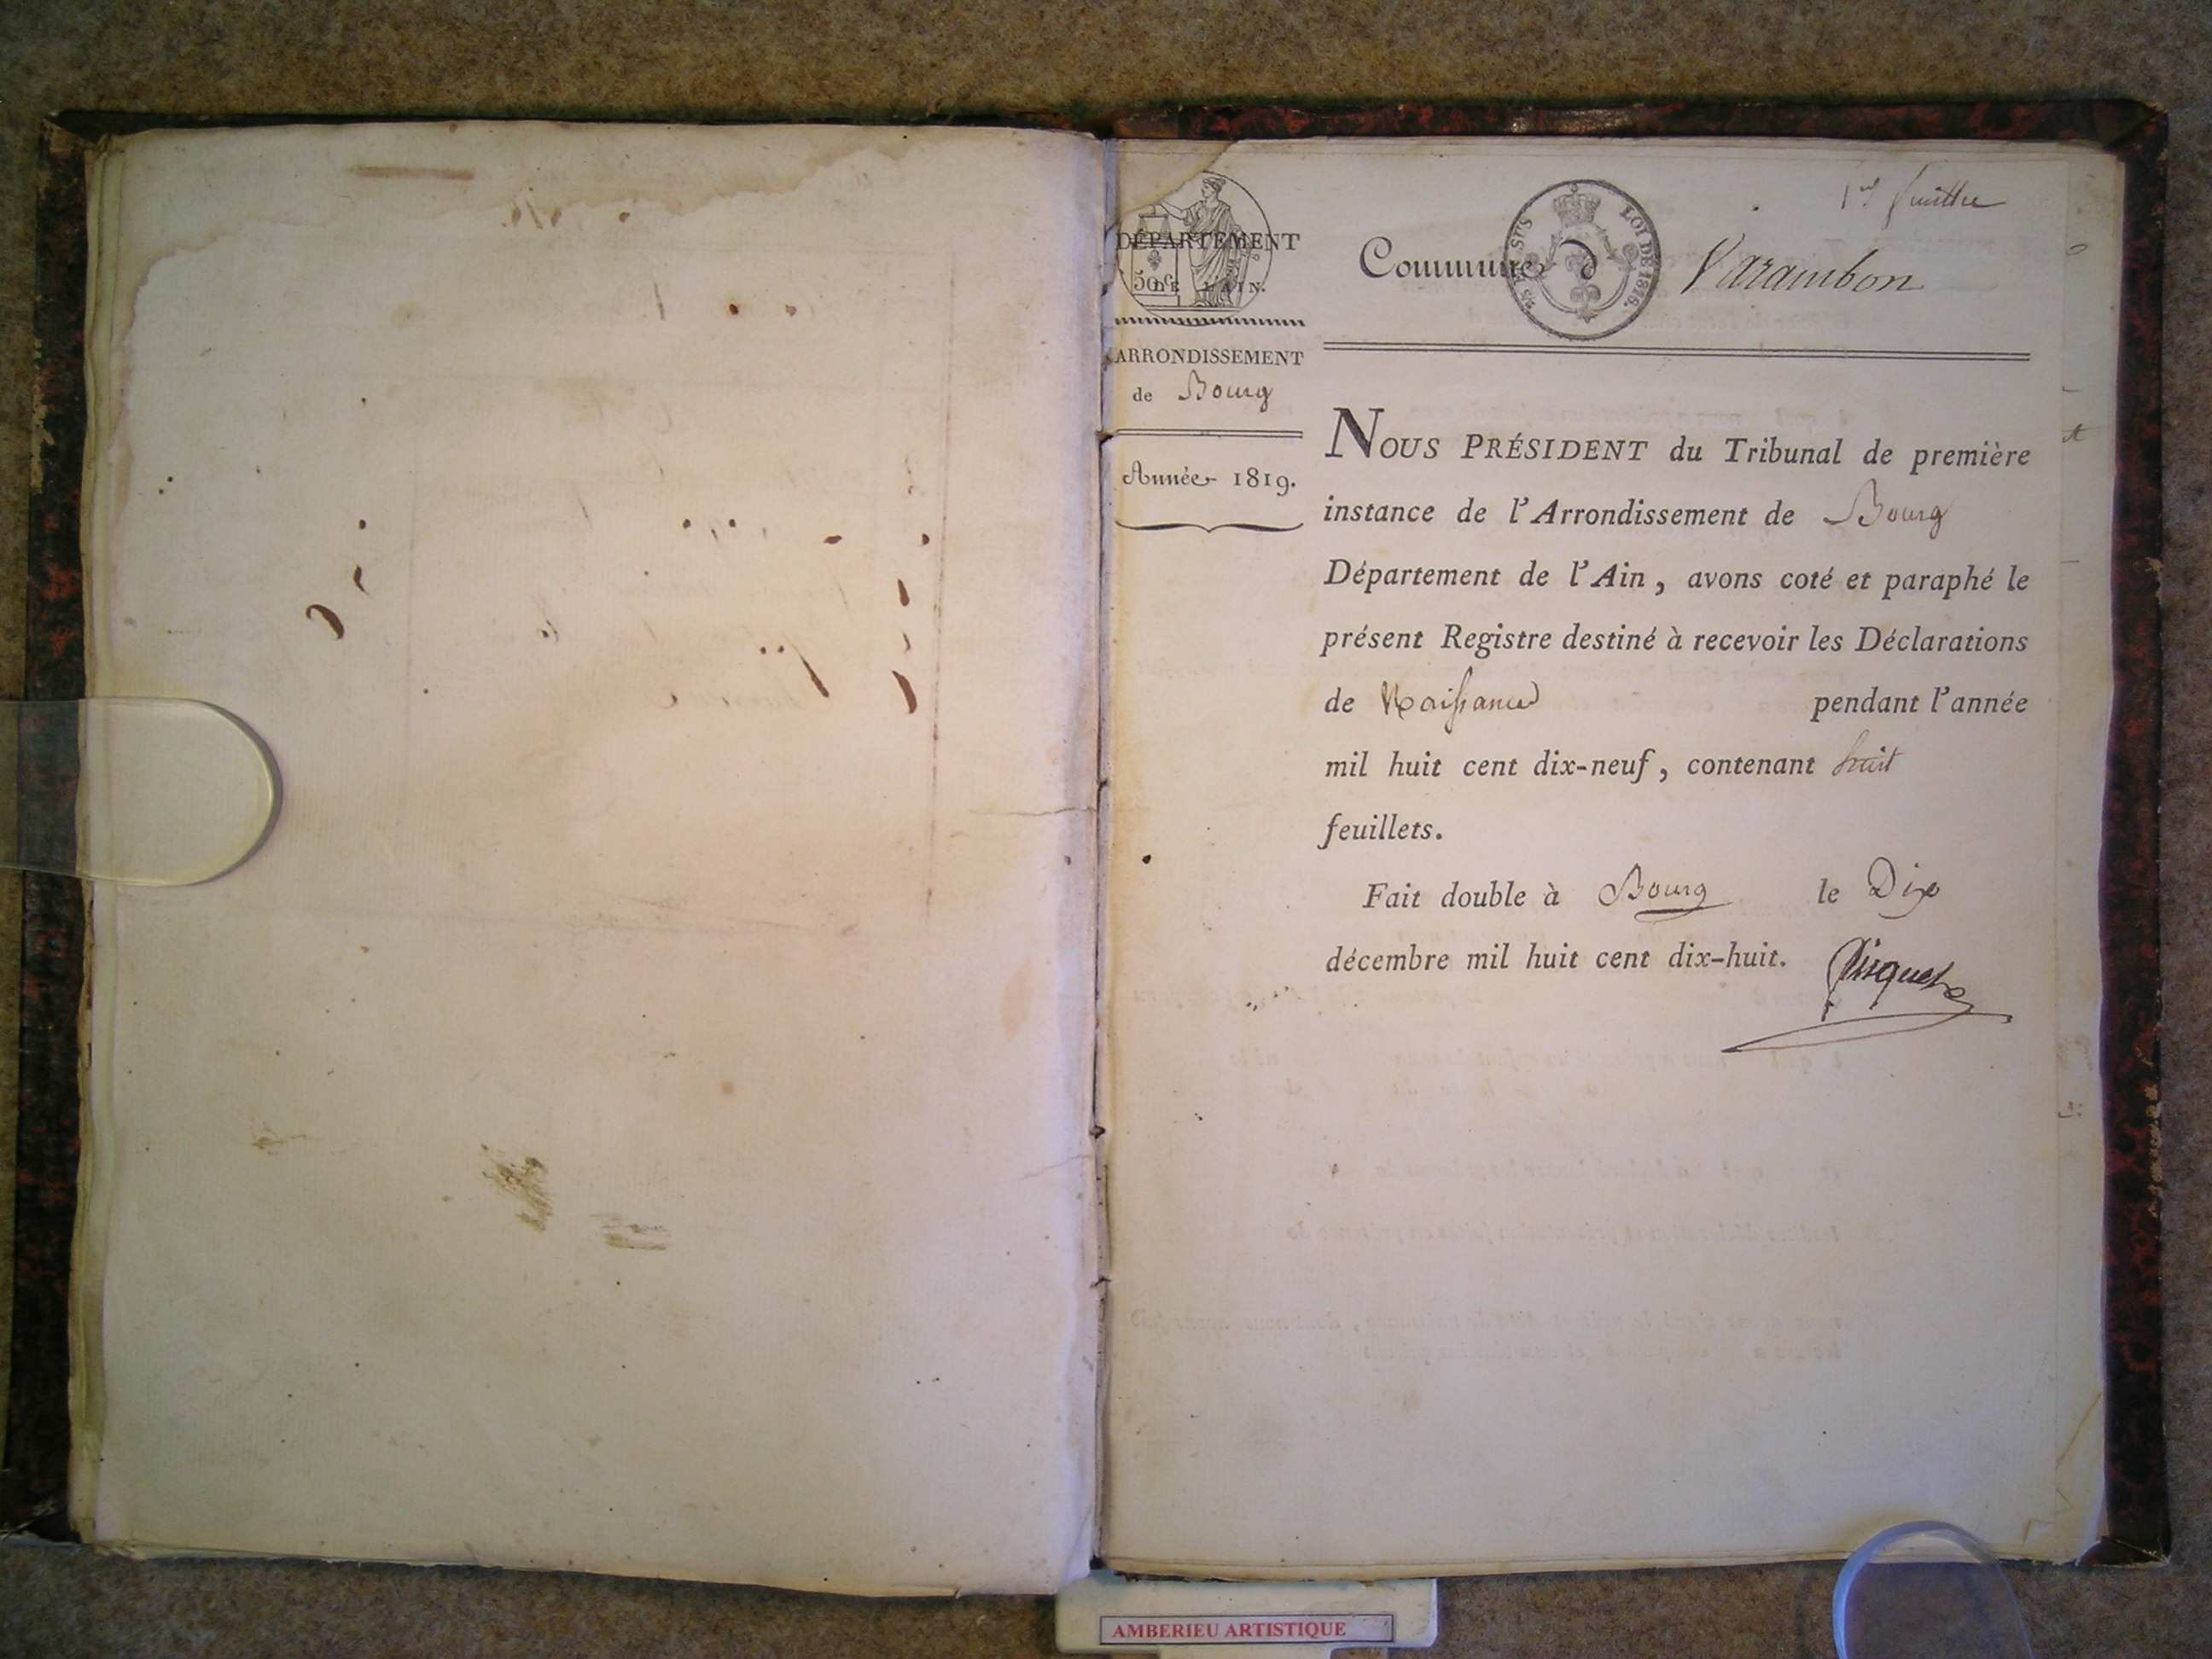 1er feuillet
DÉPARTEMENT
50 c.
DE L'AIN.
ARRONDISSEMENT
de Bourg
Année 1819.
EN SUS LOI DE 1816.
Commune d Varambon
NOUS PRÉSIDENT du Tribunal de première
instance de l'Arrondissement de Bourg
Département de l'Ain, avons coté et paraphé le
présent Registre destiné à recevoir les Déclarations
de Naissance pendant l'année
mil huit cent dix-neuf, contenant huit
feuillets.
Fait double à Bourg le Dix
décembre mil huit cent dix-huit.
AMBERIEU ARTISTIQUE